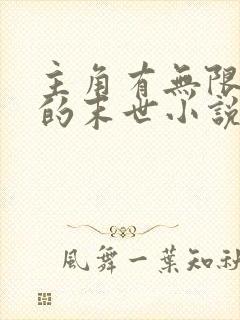 主角有無限
的末世小說
風舞一葉知秋